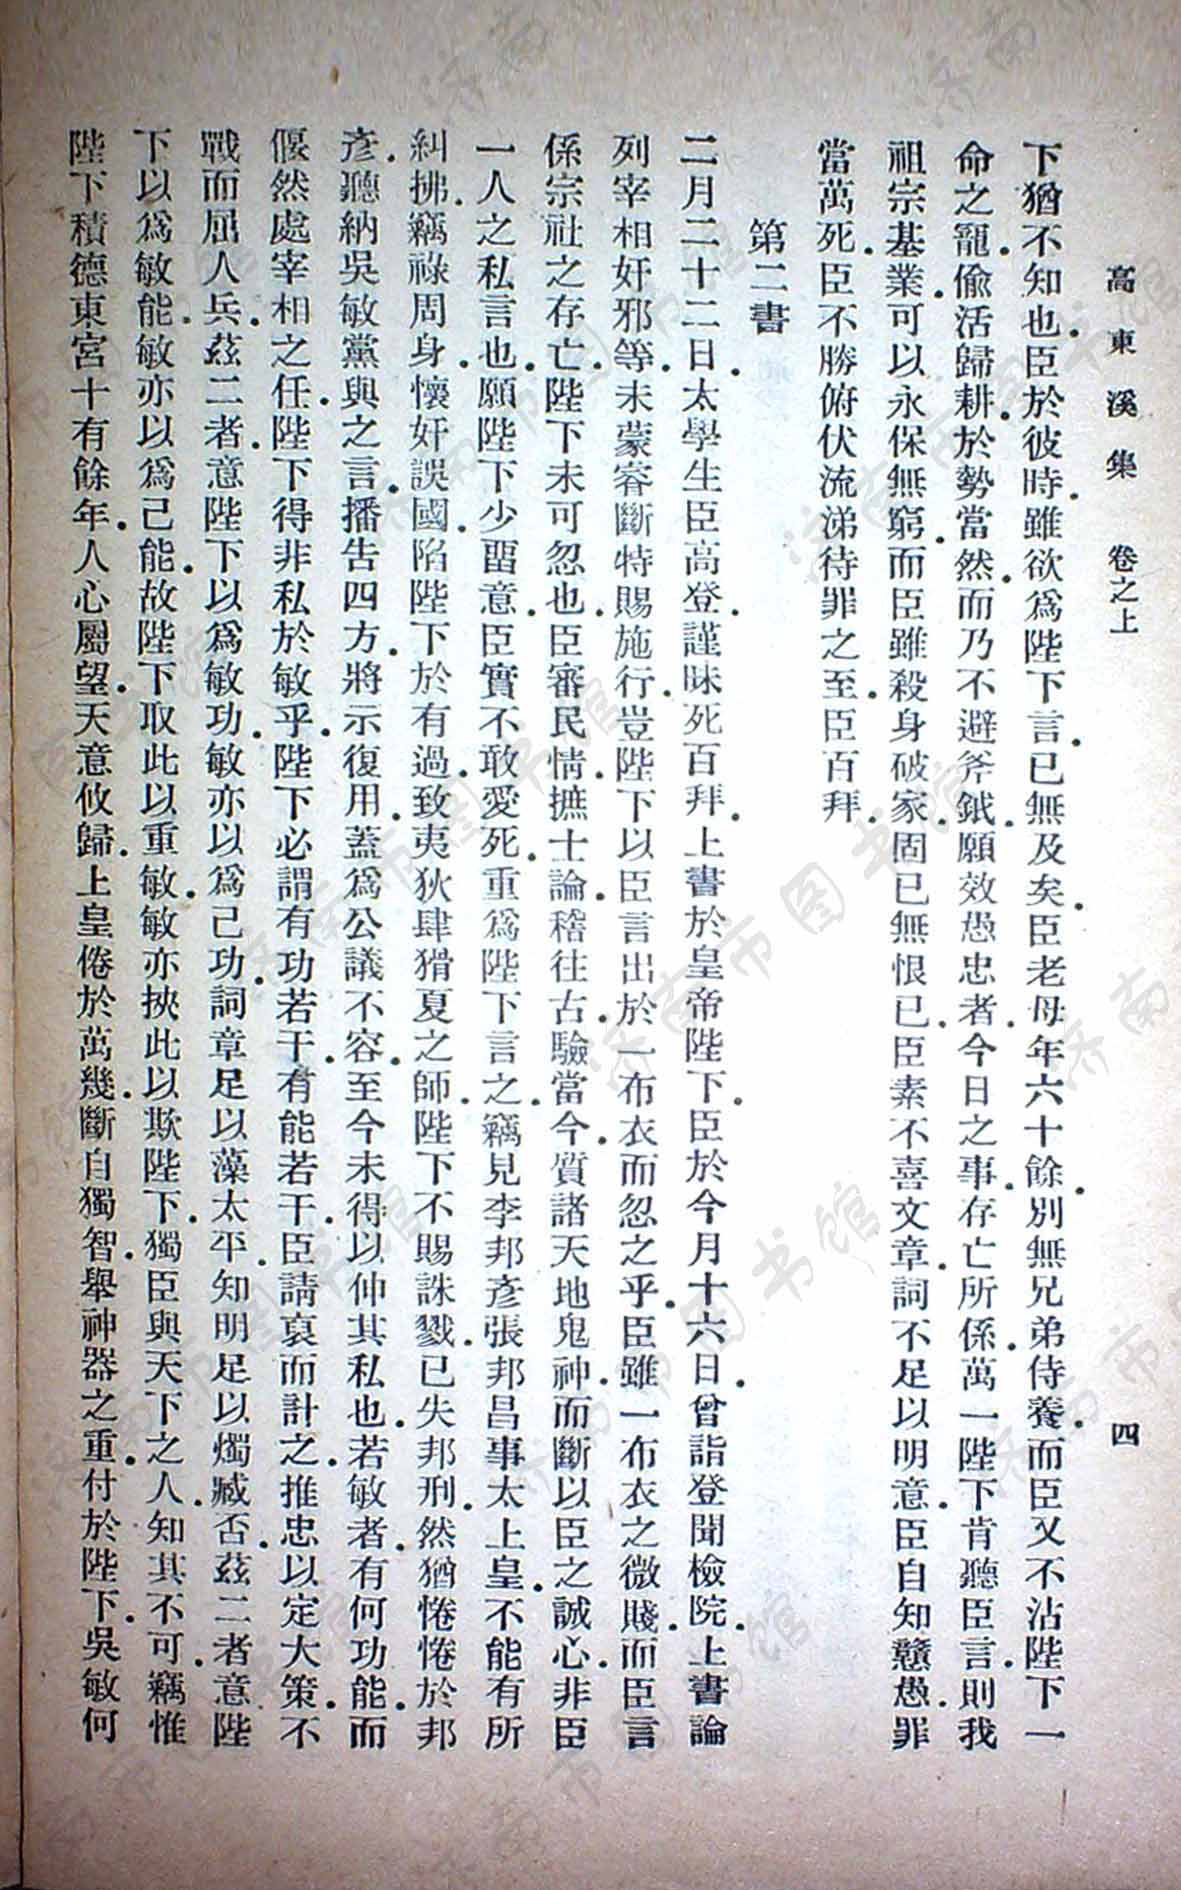 高東溪集 卷之上 四
下猶不知也.臣於彼時.雖欲爲陛下言.已無及矣.臣老母年六十餘.別無兄弟侍養.而臣又不沾陛下一
命之寵.偷活歸耕.於勢當然.而乃不避斧鉞.願效愚忠者.今日之事.存亡所係.萬一陛下肯聽臣言.則我
祖宗基業.可以永保無窮.而臣雖殺身破家.固已無恨已.臣素不喜文章.詞不足以明意.臣自知戇愚.罪
當萬死.臣不勝俯伏流涕待罪之至.臣百拜.
第二書
二月二十二日.太學生臣高登.謹昧死百拜.上書於皇帝陛下.臣於今月十六日.曾詣登聞檢院.上書論
列宰相奸邪等.未蒙睿斷特賜施行.豈陛下以臣言出於一布衣而忽之乎.臣雖一布衣之微賤.而臣言
係宗社之存亡.陛下未可忽也.臣審民情.摭士論.稽往古.驗當今.質諸天地鬼神.而斷以臣之誠心.非臣
一人之私言也.願陛下少畱意.臣實不敢愛死.重爲陛下言之.竊見李邦彥張邦昌事太上皇.不能有所
糾拂.竊祿周身.懷奸誤國.陷陛下於有過.致夷狄肆猾夏之師.陛下不賜誅戮.已失邦刑.然猶惓惓於邦
彥.聽納吳敏黨與之言.播告四方.將示復用.蓋爲公議不容.至今未得以伸其私也.若敏者.有何功能.而
偃然處宰相之任.陛下得非私於敏乎.陛下必謂有功若干.有能若干.臣請裒而計之.推忠以定大策.不
戰而屈人兵.茲二者.意陛下以爲敏功.敏亦以爲己功.詞章足以藻太平.知明足以燭臧否.茲二者.意陛
下以爲敏能.敏亦以爲己能.故陛下取此以重敏.敏亦挾此以欺陛下.獨臣與天下之人.知其不可.竊惟
陛下積德東宮十有餘年.人心屬望.天意攸歸.上皇倦於萬幾.斷自獨智.舉神器之重.付於陛下.吳敏何